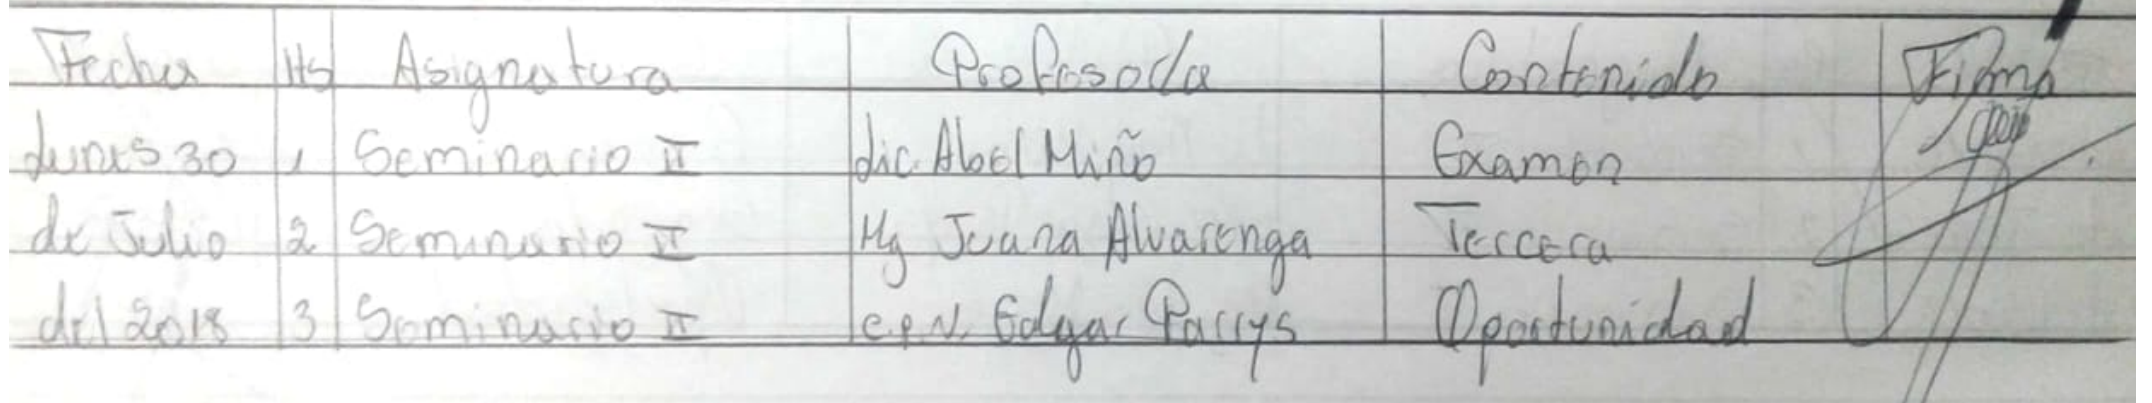 Fecha Hs Asignatura Profesor/a Contenido Firma
Lunes 30 1 Seminario II Lic. Abel Miño Examen
de Julio 2 Seminario II Mg Juana Alvarenga Tercera
del 2018 3 Seminario II C.P.N. Edgar Parrys Oportunidad